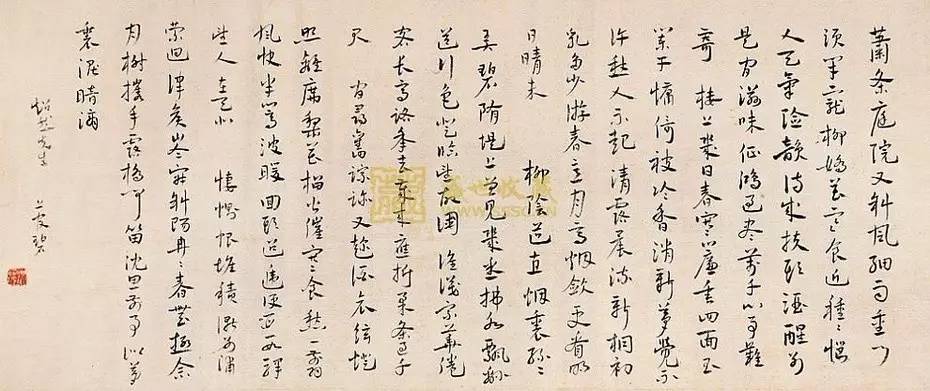 蕭条庭院又斜風細雨重門
須閉寵柳嬌花寒食近種種惱
人天氣險韻詩成扶頭酒醒別
是閒滋味征鴻過盡萬千心事難
寄 樓上幾日春寒簾垂四面玉
闌干慵倚被冷香消新夢覺不
許愁人不起清露晨流新桐初
引多少游春意日高烟斂更看今
日晴未 柳陰直烟裏絲絲
弄碧隋堤上曾見幾番拂水飄綿
送行色登臨望故國誰識京華倦
客長亭路年去歲來應折柔條過千
尺 閒尋舊蹤跡又趁酒哀弦燈
照離席梨花榆火催寒食愁一箭
風快半篙波暖回頭迢遞便數驛望
人在天北 悽惻恨堆積漸別浦
縈迴津堠岑寂斜陽冉冉春無極念
月榭攜手露橋聞笛沈思前事似夢
裏淚暗滴
先生
盛世收藏